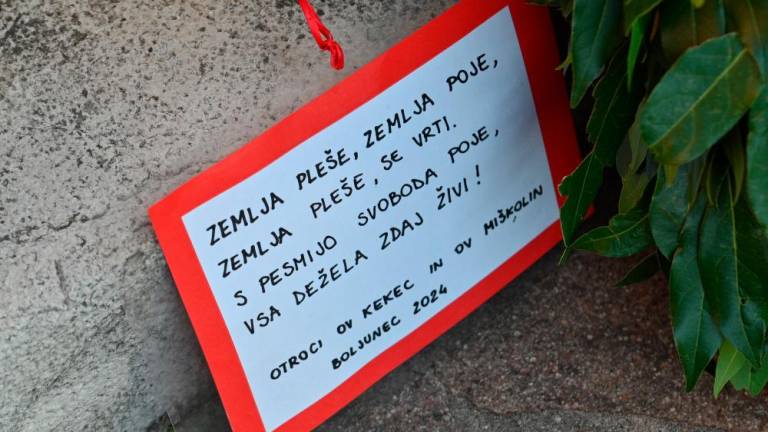 ZEMLJA PLEŠE, ZEMLJA POJE,
ZEMLJA PLEŠE, SE VRTI.
S PESMIJO SVOBODA POJE,
VSA DEŽELA ZDAJ ŽIVI!
OTROCI OV KEKEC IN OV MIŠKOLIN
BOLJUNEC 2024